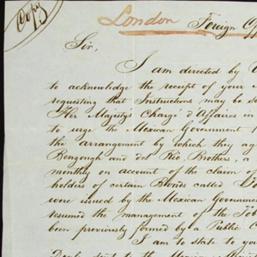 Copy
London Foreign Off
Sir,
I am directed by
to acknowledge the receipt of your
requesting that Instructions may be s
Her Majesty's Chargé d'Affaires in
to urge the Mexican Government
the arrangement by which they ag
and del Rio, Brothers, a
monthly on account of the claim o
holders of certain Bonds called
were issued by the Mexican Governmen
resumed the management of the Tob
been previously formed by a Public C
I am to state to yo